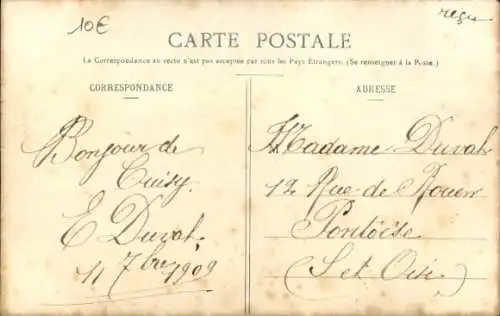 10€
reçu
CARTE POSTALE
La Correspondance au recto n'est pas acceptée par tous les Pays Etrangers. (Se renseigner à la Poste.)
CORRESPONDANCE
Bonjour de
Cuisy.
E Duval.
11 7bre 1909
ADRESSE
Madame Duval
12 Rue de Rouen
Pontoise
(S et Oise)